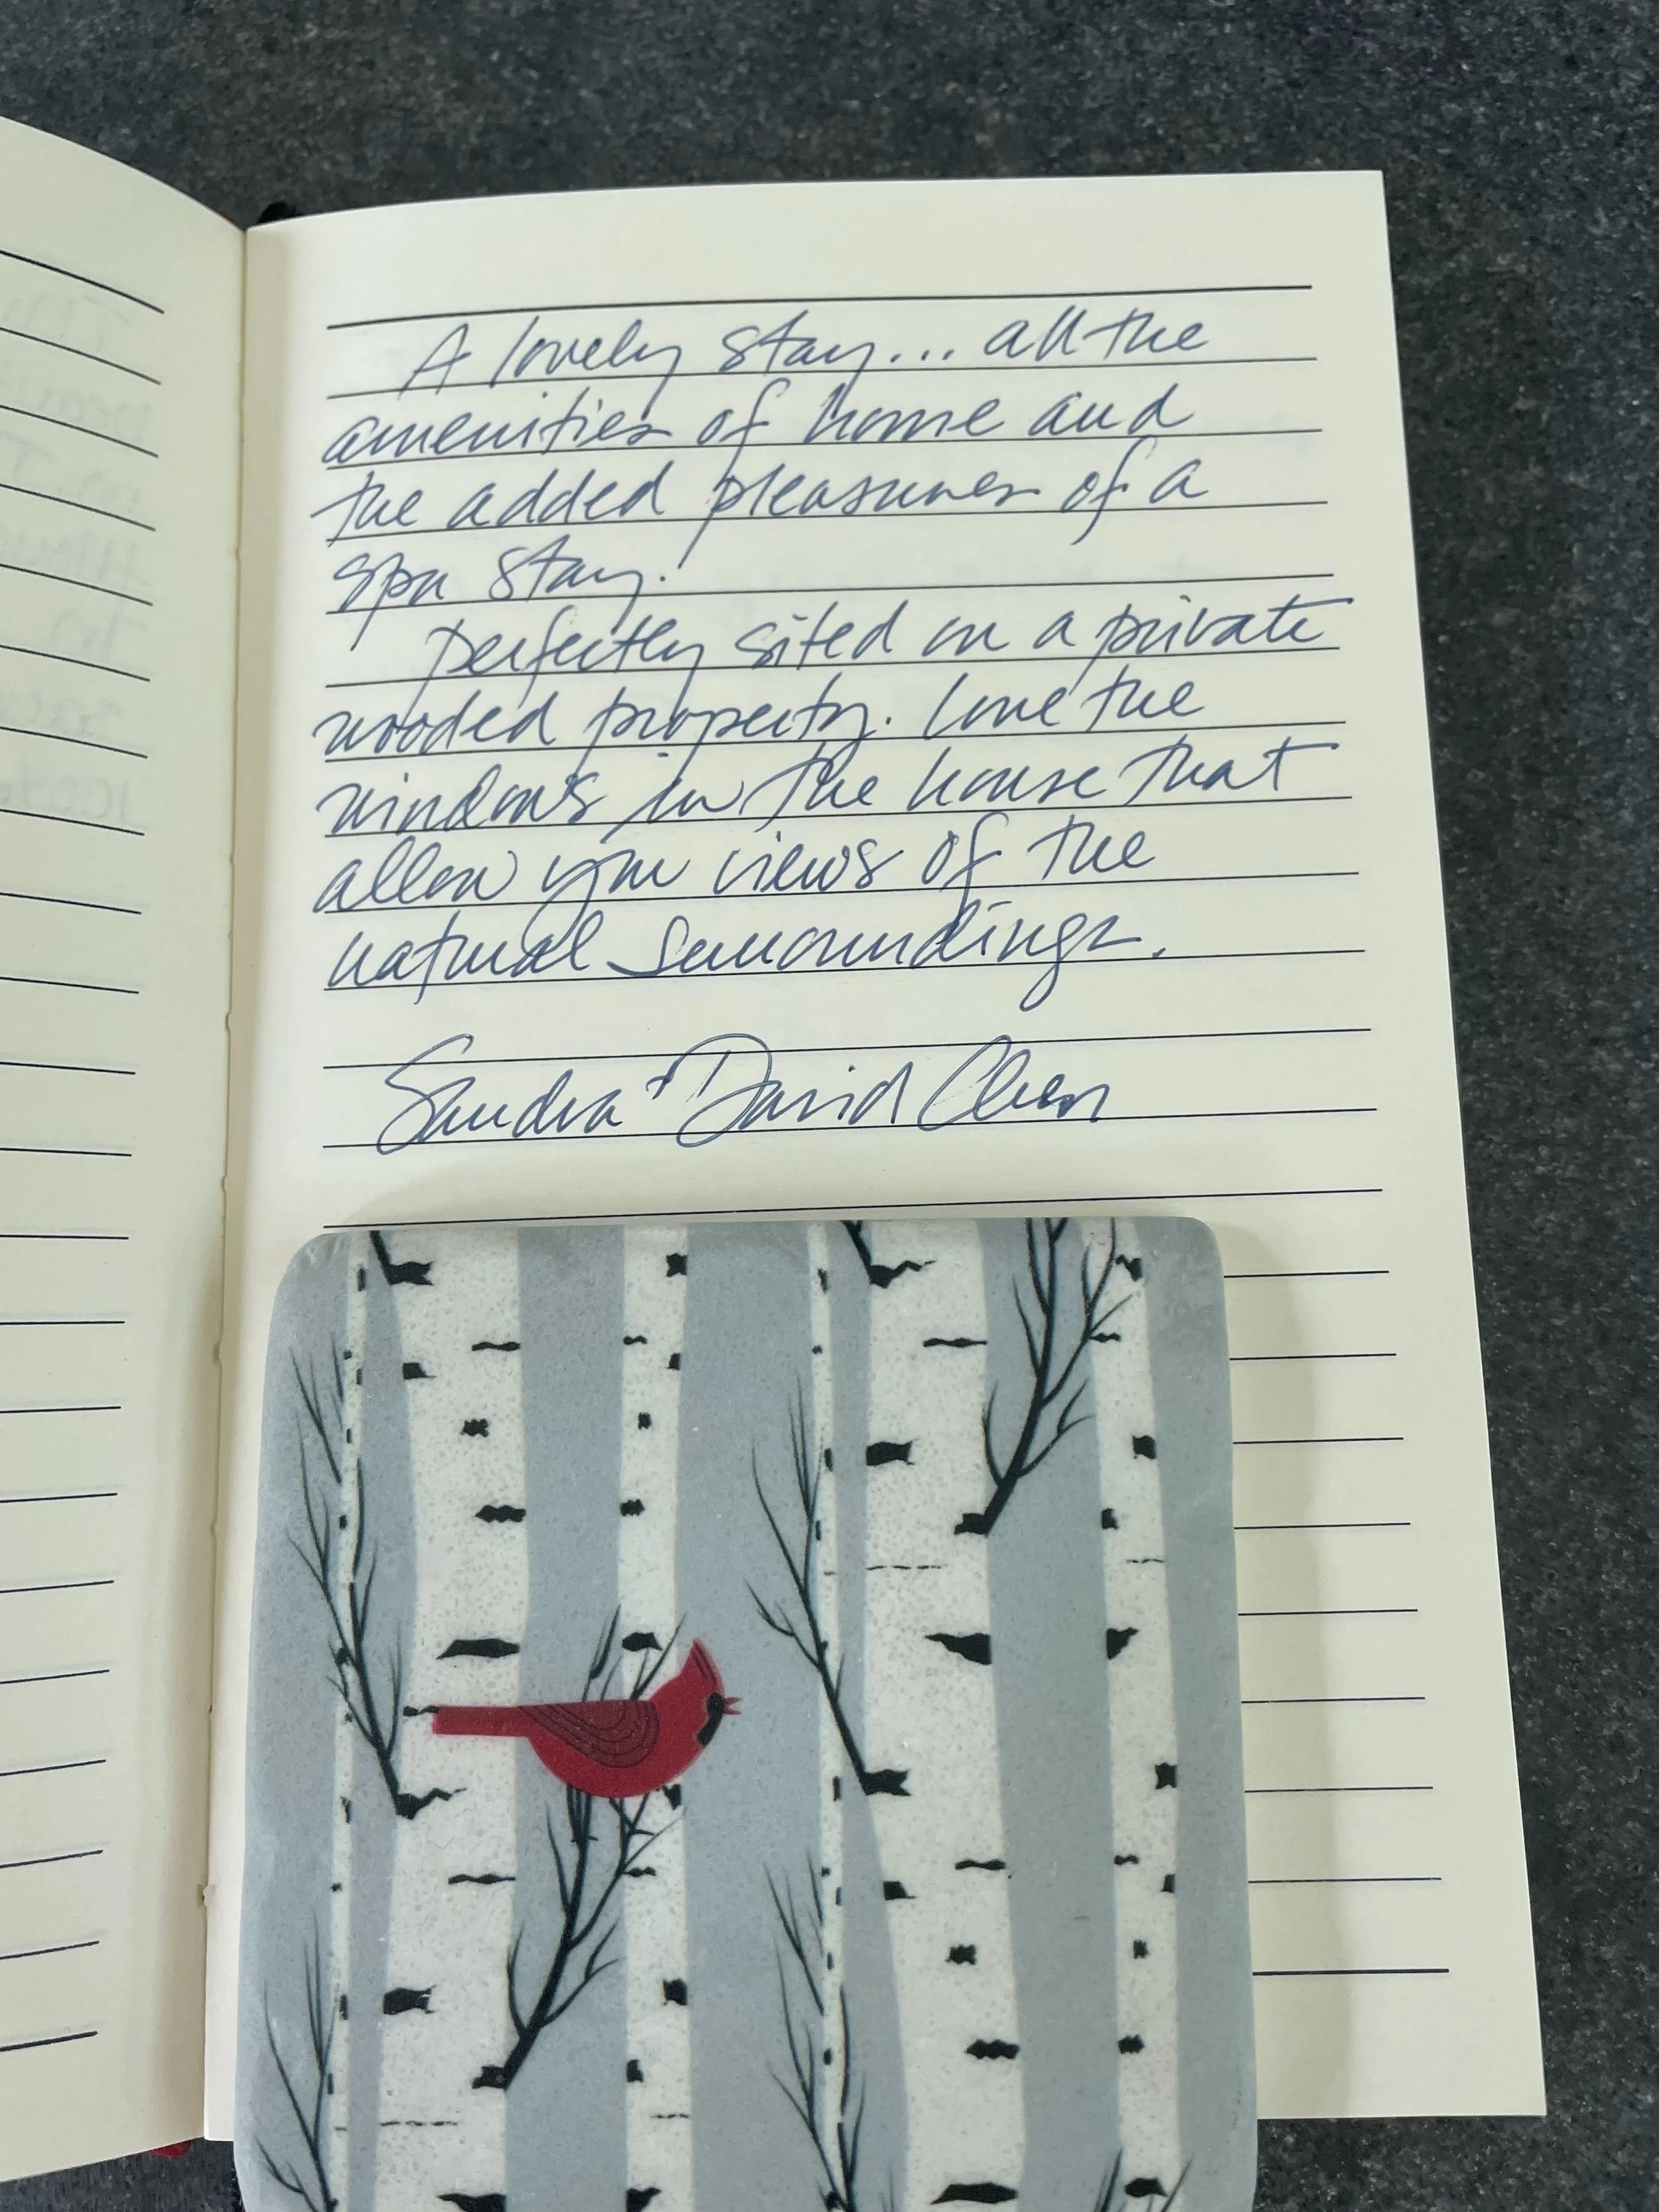 A lovely stay... all the
amenities of home and
the added pleasures of a
spa stay.
Perfectly sited on a private
wooded property. Love the
windows in the house that
allow you views of the
natural surroundings.
Sandra & David